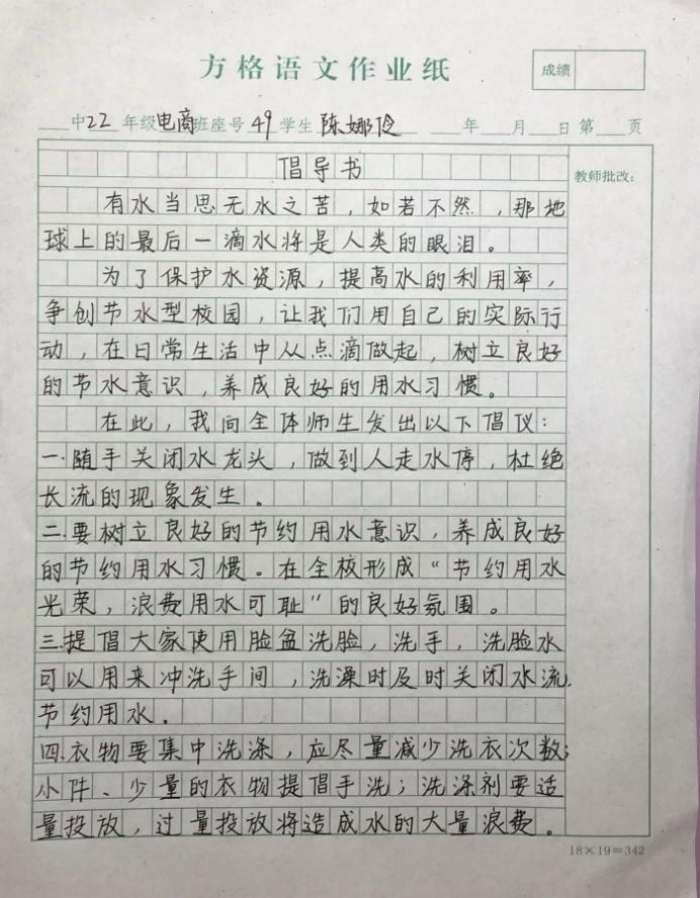 方格语文作业纸
成绩
中22年级电商班座号49学生陈娜伶 年 月 日第 页
教师批改:
倡导书
有水当思无水之苦，如若不然，那地
球上的最后一滴水将是人类的眼泪。
为了保护水资源，提高水的利用率，
争创节水型校园，让我们用自己的实际行
动，在日常生活中从点滴做起，树立良好
的节水意识，养成良好的用水习惯。
在此，我向全体师生发出以下倡仪：
一.随手关闭水龙头，做到人走水停，杜绝
长流的现象发生。
二.要树立良好的节约用水意识，养成良好
的节约用水习惯。在全校形成“节约用水
光荣，浪费用水可耻”的良好氛围。
三.提倡大家使用脸盆洗脸，洗手，洗脸水
可以用来冲洗手间，洗澡时及时关闭水流.
节约用水.
四.衣物要集中洗涤，应尽量减少洗衣次数;
小件、少量的衣物提倡手洗；洗涤剂要适
量投放，过量投放将造成水的大量浪费。
18×19=342